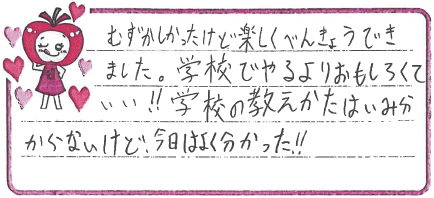 むずかしかったけど楽しくべんきょうでき
ました。学校でやるよりおもしろくて
いい!!学校の教えかたはいみわ
からないけど、今日はよく分かった!!